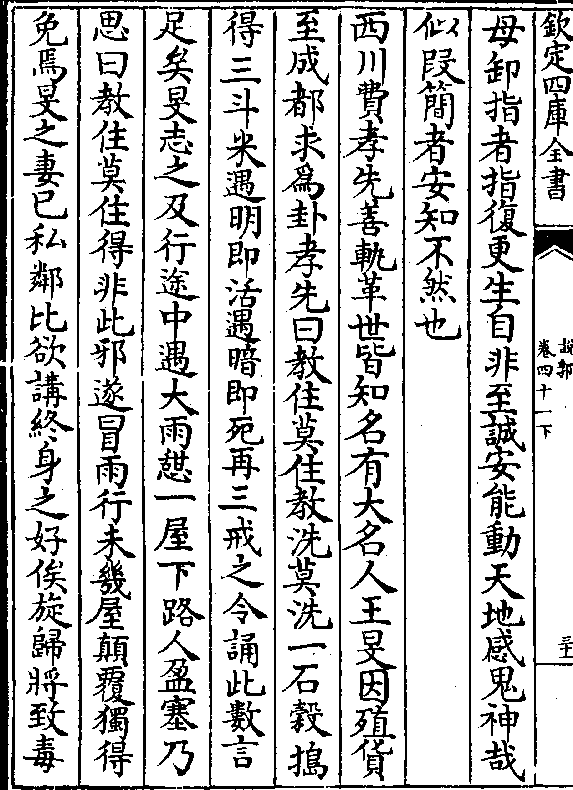 欽定四庫全書
說郛
卷四十一下
三十一
母卸指者指復更生自非至誠安能動天地感鬼神哉
似段簡者安知不然也
西川費孝先善軌革世皆知名有大名人王旻因殖貨
至成都求為卦孝先曰教住莫住教洗莫洗一石穀搗
得三斗米遇明即活遇暗即死再三戒之令誦此數言
足矣旻志之及行途中遇大雨憇一屋下路人盈塞乃
思曰教住莫住得非此邪遂冒雨行未幾屋顛覆獨得
免焉旻之妻已私鄰比欲講終身之好俟旋歸將致毒